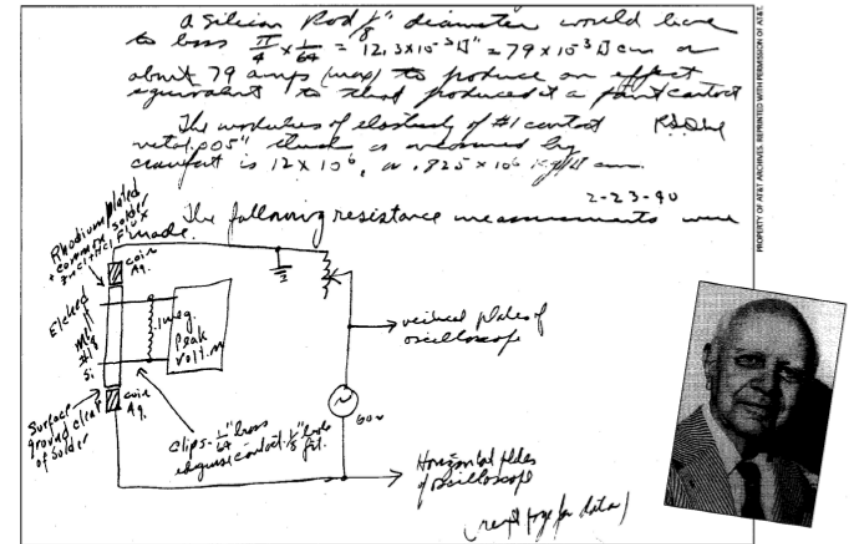 A Silicon Rod 1/8" diameter would have
to pass π/4 × 1/64 = 12.3×10⁻³ □" = 79×10⁻³ □ cm or
about 79 amps (max) to produce an effect
equivalent to that produced at a point contact
The modulus of elasticity of #1 contact
metal .005" thick as measured by
is 12 × 10⁶, or .825 × 10⁶ Kg/□ cm.
2-23-40
The following resistance measurements were
made.
Rhodium plated
+ common solder
+ ZnCl+HCl Flux
coin
Ag.
Etched
Si
1 meg.
Peak
volt.m
vertical plates of
oscilloscope
60~
Surface
ground clear
of solder
coin
Ag.
clips - 1/64" brass
contact. 1/8" hole
fit.
Horizontal plates
of oscilloscope
(next page for data)
PROPERTY OF AT&T ARCHIVES. REPRINTED WITH PERMISSION OF AT&T.